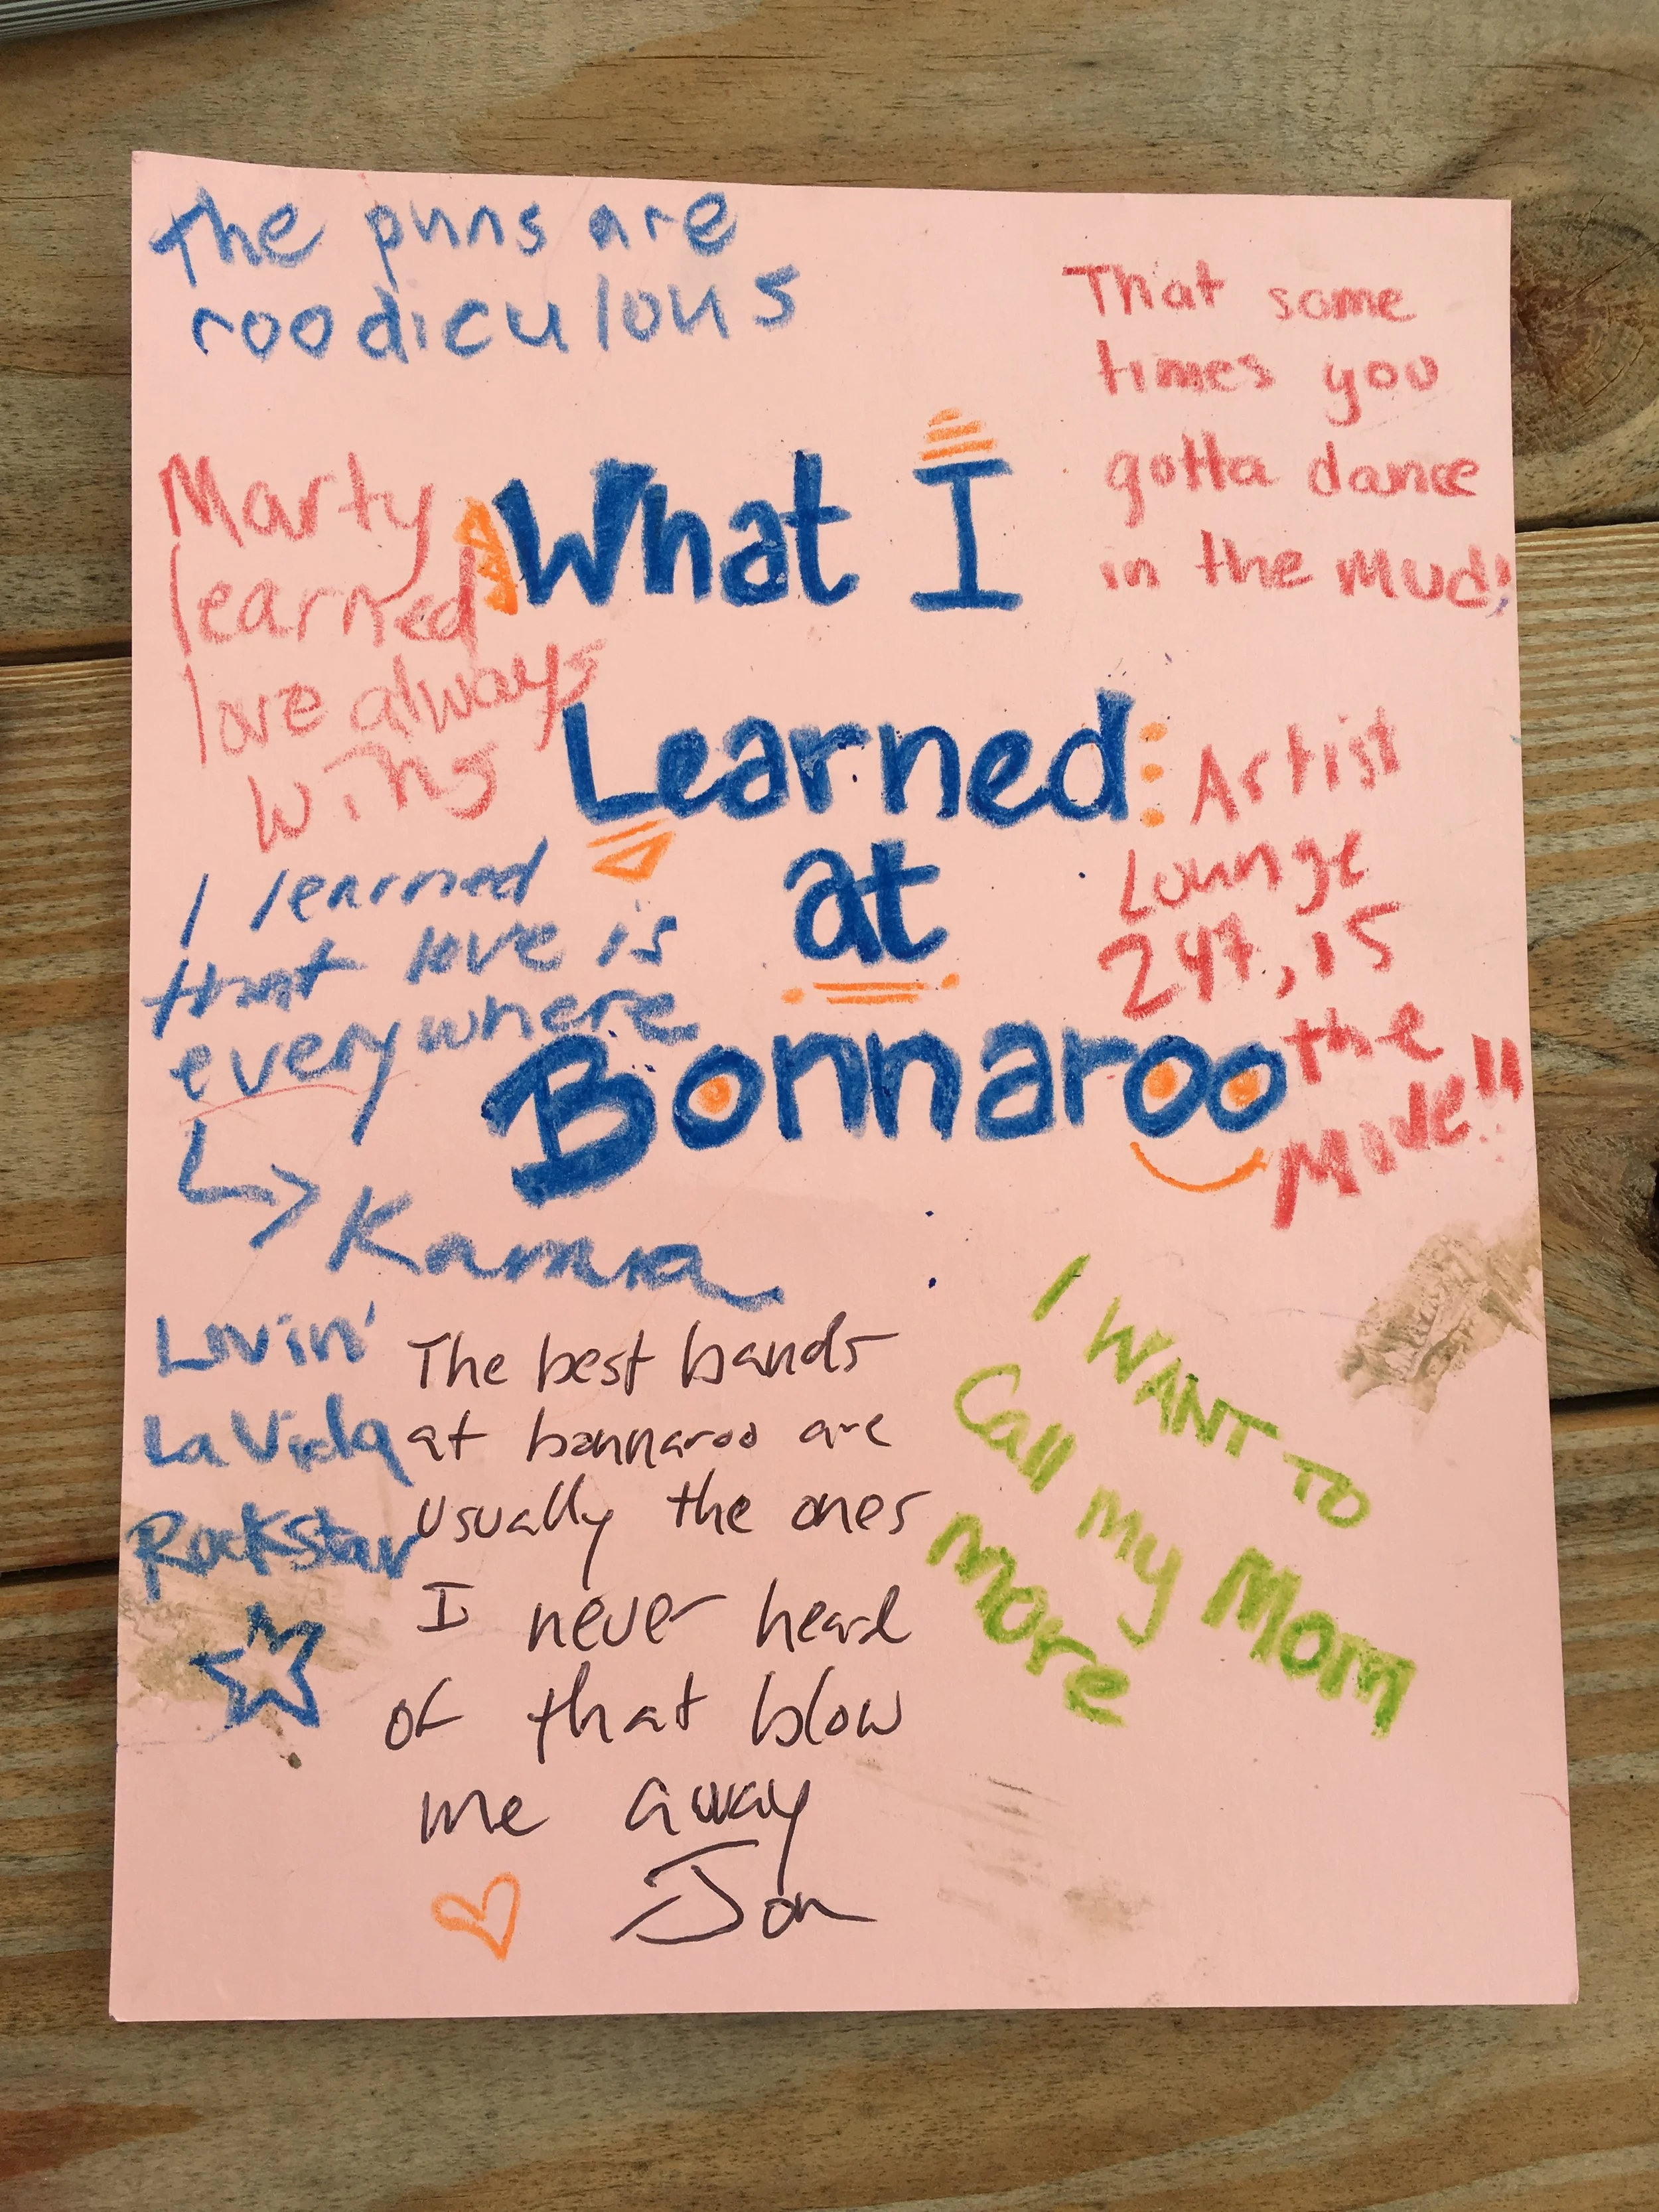 The puns are
roodiculous
That some
times you
gotta dance
in the mud!
What I
Learned
at
Bonnaroo
Marty
learned
love always
wins
I learned
that love is
everywhere
Artist
Lounge
247, is
the
Move!!
Lovin'
La Vida
Rockstar
The best bands
at bonnaroo are
usually the ones
I never heard
of that blow
me away
Jon
I WANT TO
Call my Mom
More